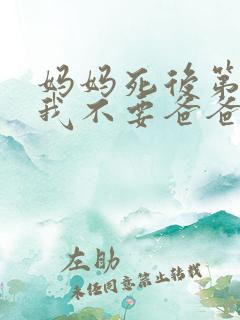 妈妈死后第
我不要爸爸
左助
未经同意禁止转载